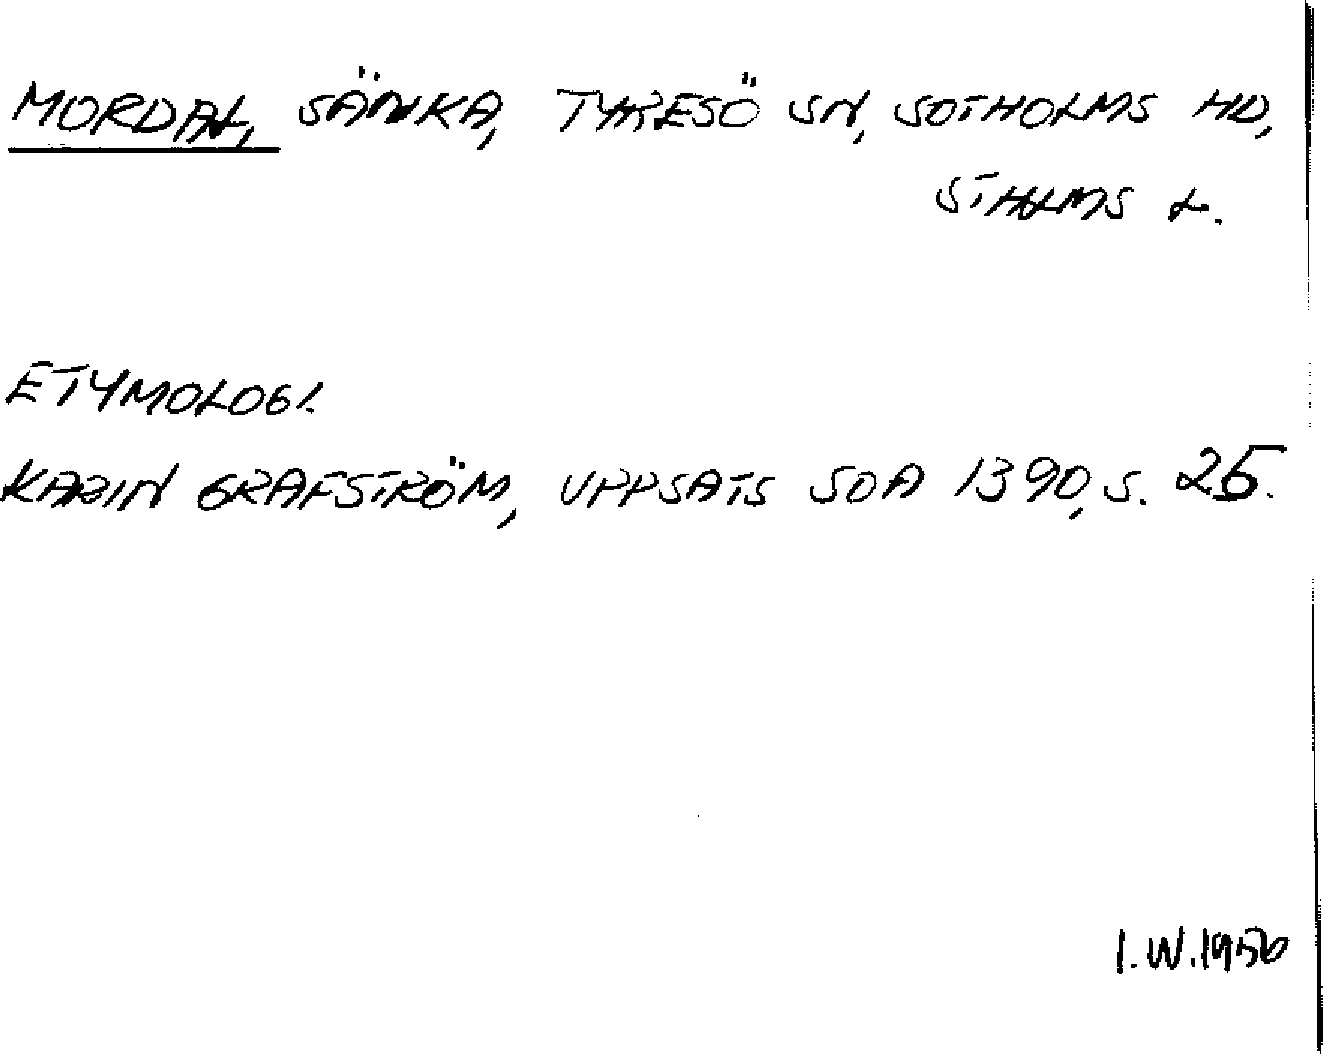 MORDAL, SÄNKA, TYRESÖ SN, SOTHOLMS HD,
STHLMS L.
ETYMOLOGI.
KARIN GRAFSTRÖM, UPPSATS SOA 1390, S. 25.
I.W.1956